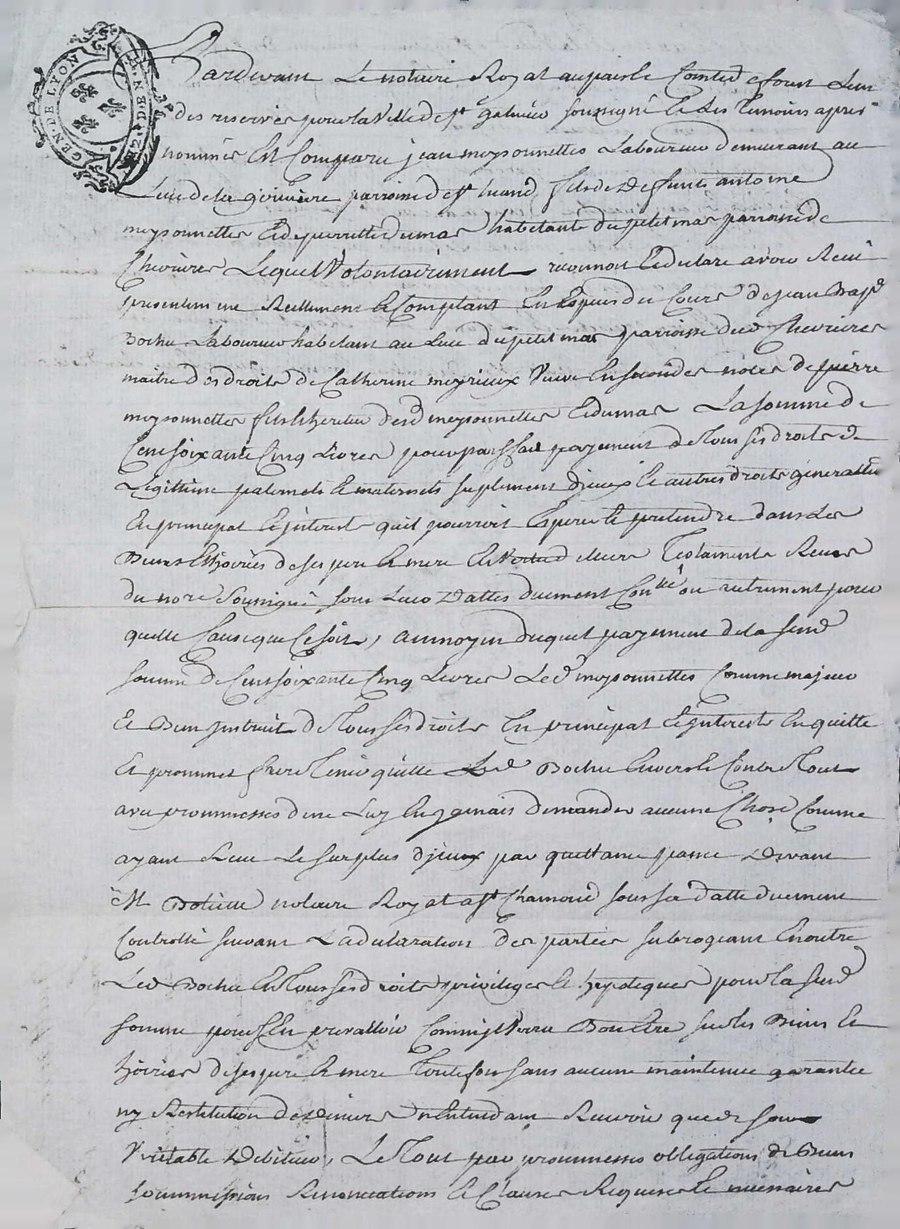 GEN. DE LYON
Pardevant Le notaire Royal au païs de Comté de forest L'un
des reservés pour la Ville de st galmier soussigné et des temoins apres
nommés Est Comparu jean meysonnettes Laboureur demeurant au
Lieu de la parroisse de st fils de deffunts antoine
meysonnettes Et de pierrette dumas habitante du petit mas parroisse de
Chevrieres Lequel Volontairement reconnoit Et declare avoir Receu
presentement Reellement Et Comptant En Especes du Cours de jean
Bochu Laboureur habitant au Lieu du petit mas parroisse dud Chevrieres
maitre des droits de Catherine meyrieux Veuve En secondes noces de pierre
meysonnettes fils heritier desd meysonnettes Et dumas La somme de
Cent soixante Cinq Livres pour parfait payement de Tous ses droits de
Legittime paternels Et maternels suplement d'iceux Et autres droits generallt
En principal Et interest quil pourroit Esperer Et pretendre dans Les
Biens Et hoiries de ses pere Et mere En Vertu de Leurs Testaments Receus
du nore soussigné sous Leurs Dattes duement Conllé ou autrement pour
quelle Cause que Ce soit, au moyen duquel payement de la susd
somme de Cent soixante Cinq Livres Led meysonnettes Comme majeur
Et Bien instruit de Tous ses droits En principal Et interest En quitte
Et promet faire Tenir quitte Led Bochu Envers Et Contre Tous
avec promesses de ne Luy En jamais demander aucune Chose Comme
ayant Receu Le surplus d'iceux par quittance passée devant
Me notaire Royal a st Chamond sous sa datte duement
Controllé suivant La declaration des parties subrogeant En outre
Led Bochu En Tous ses droits privileges Et hypoteques pour la susd
somme pour s'En prevalloir Comm'il Verra Bon Etre sur les Biens Et
hoiries de ses pere Et mere Toutefois sans aucune maintenue garantie
ny Restitution de deniers n'Entendant Recevoir que de son
Veritable debiteur, Le Tout par promesses obligations de Biens
soummissions Renonciations Et Clauses Requises Et necessaires